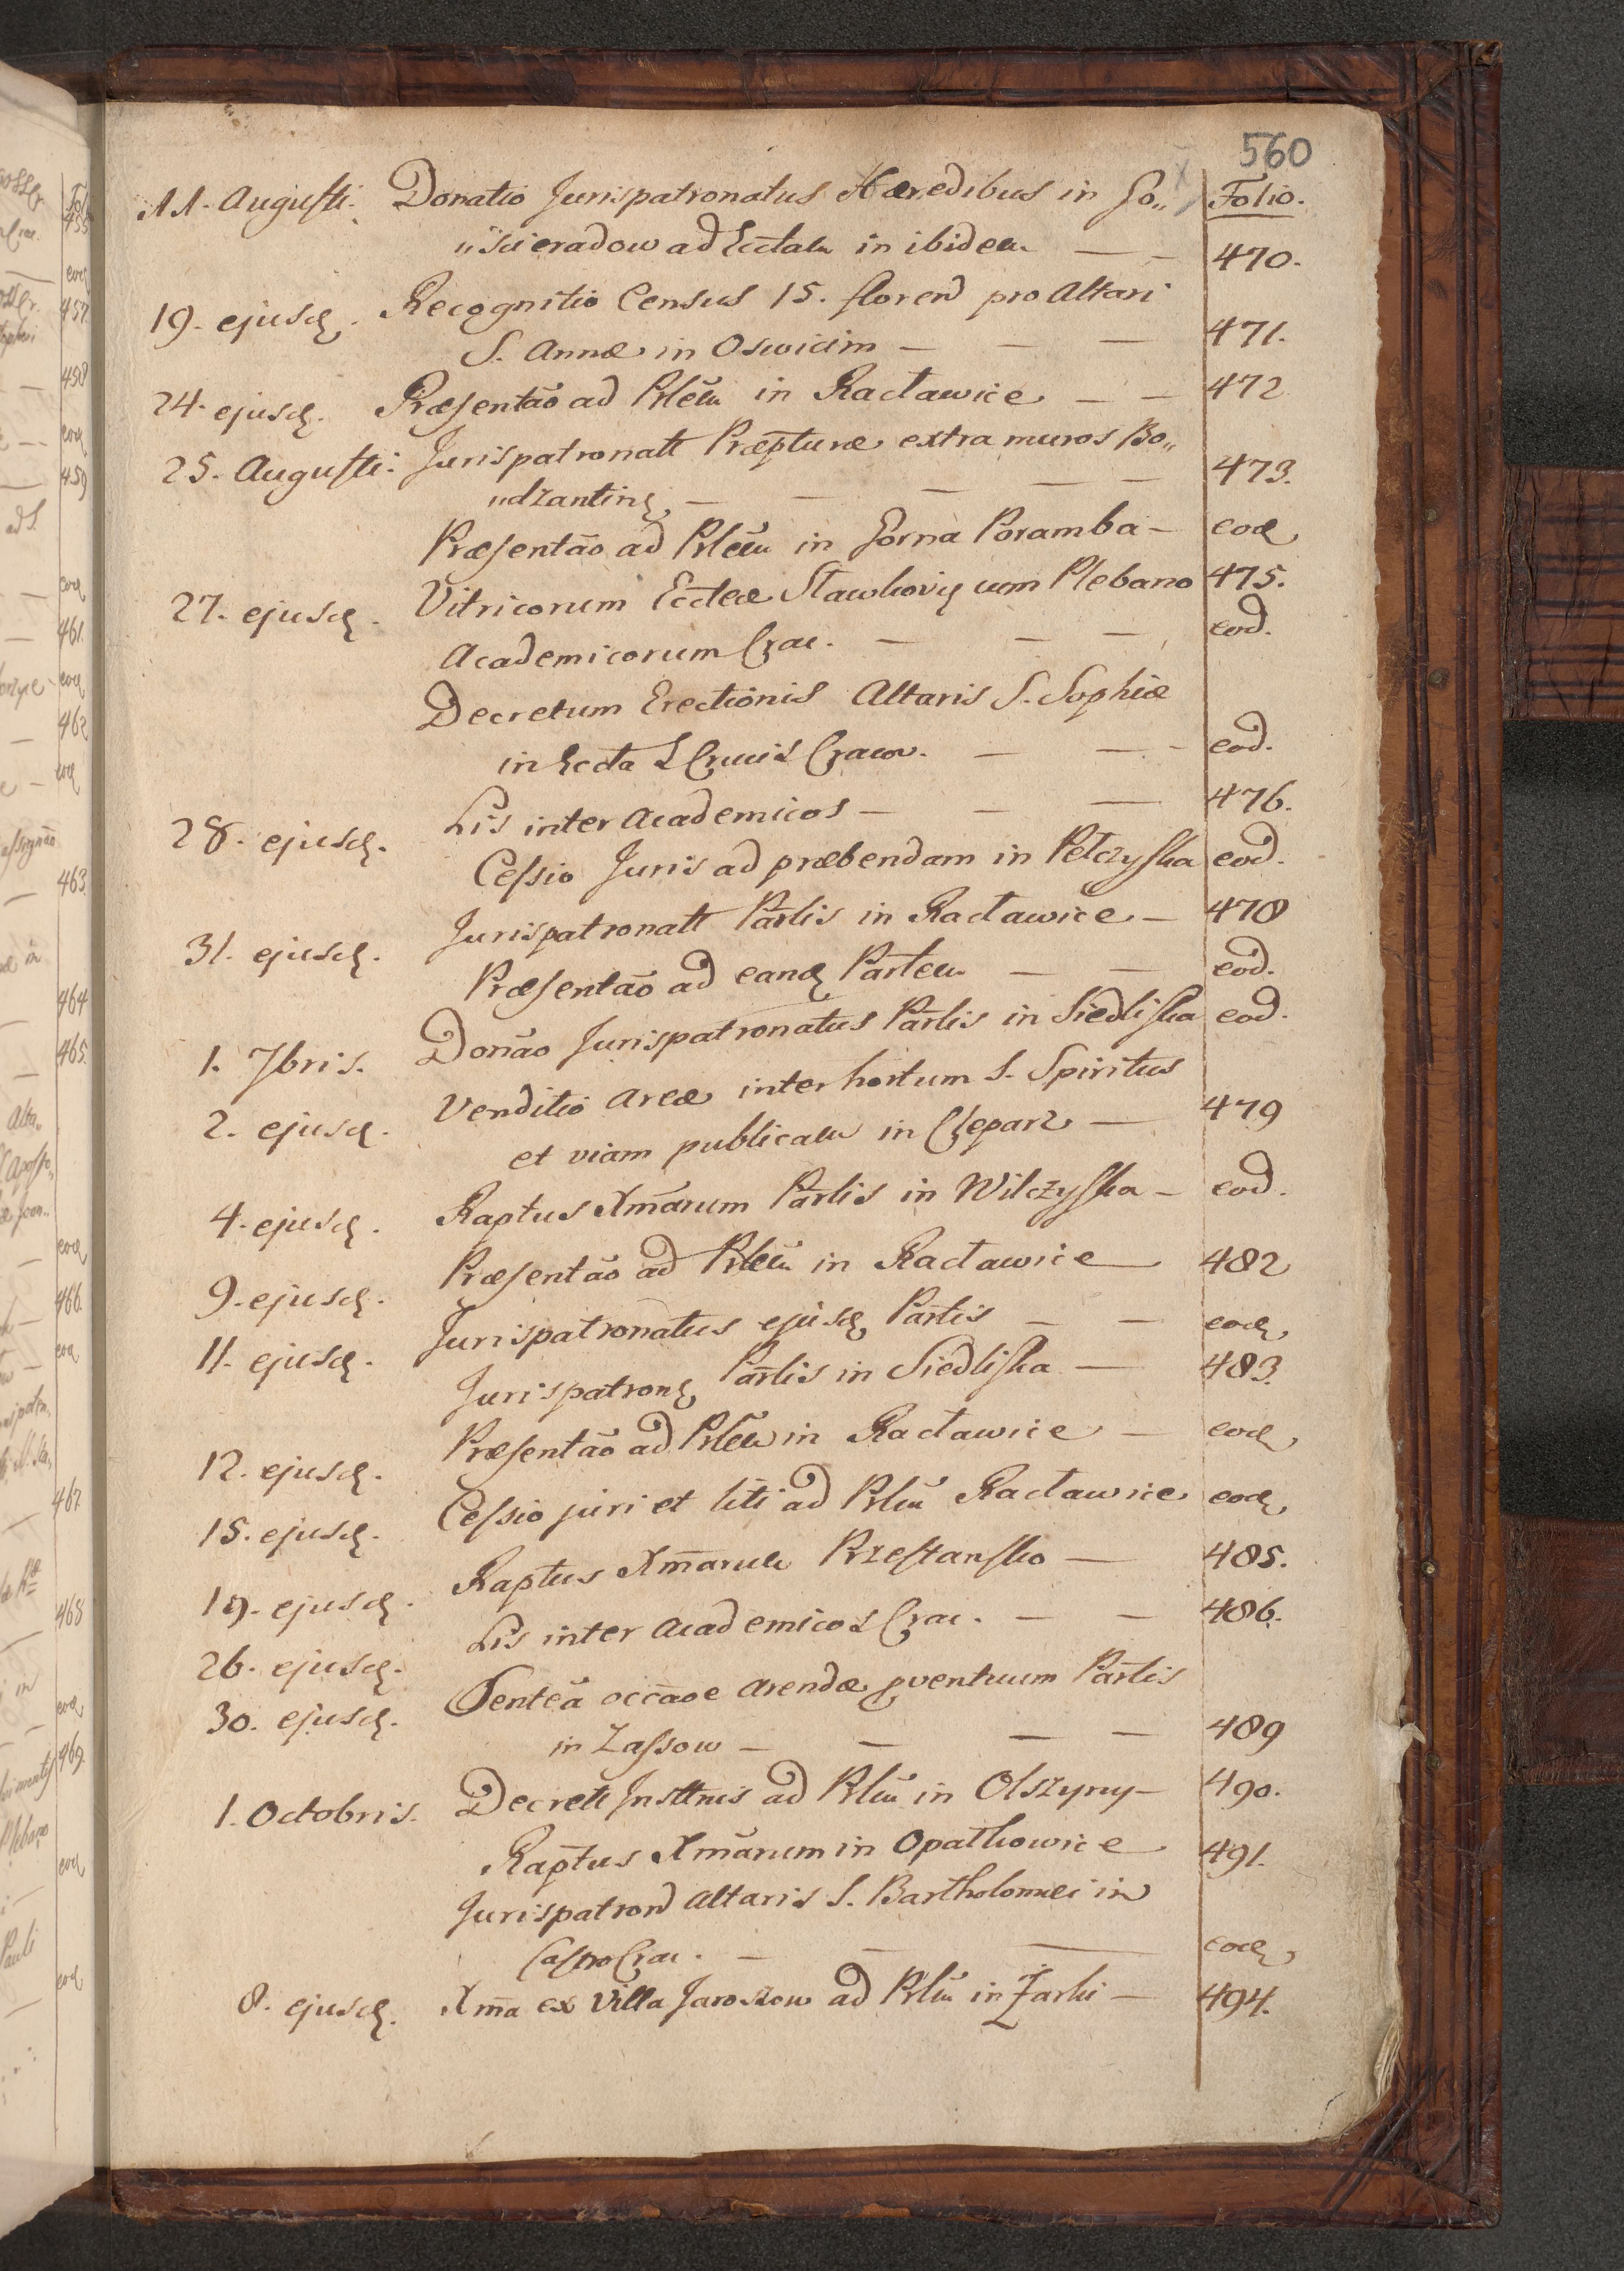 560
Folio.
11. Augusti. Donatio Jurispatronatus Hæredibus in Go„
„ścieradow ad Ecctam in ibidem — — 470.
19. ejusd. Recognitio Census 15. floren pro Altari
S. Annæ in Oswicim — — — 471.
24. ejusd. Præsentāo ad Plēm in Racławice — — 472
25. Augusti. Jurispatronatt Præpturæ extra muros Bo„
„dzantinę — — — — — 473.
Præsentāo ad Plēm in Gorna Poramba — eod.
27. ejusd. Vitricorum Eccleæ Sławkovię cum Plebano 475.
Academicorum Crac. — — — eod.
Decretum Erectionis Altaris S. Sophiæ
in Eccta S Crucis Cracov. — — — eod.
28. ejusd. Lis inter Academicos — — — 476.
Cessio Juris ad præbendam in Pełczyska eod.
31. ejusd. Jurispatronatt Parlis in Racławice — 478
Præsentāo ad eand Parlem — — eod.
1. 7bris. Donāo Jurispatronatus Parlis in Siedliska eod.
2. ejusd. Venditio areæ inter hortum S. Spiritus
et viam publicam in Clepars — 479
4. ejusd. Raptus Xmārum Parlis in Wilczyska — eod.
9. ejusd. Præsentāo ad Plēm in Racławice 482
11. ejusd. Jurispatronatus ejusd Parlis — — eod.
Jurispatronę Parlis in Siedliska — 483.
12. ejusd. Præsentāo ad Plēm in Racławice — eod.
15. ejusd. Cessio juri et liti ad Plēm Racławice eod.
19. ejusd. Raptus Xmārum Przestansko — 485.
26. ejusd. Lis inter Academicos Crac. — — 486.
30. ejusd. Sentēa occāoe arendæ pventuum Parlis
in Zassow — — — — 489
1. Octobris. Decreti Insttnis ad Plēm in Olszyny — 490.
Raptus Xmārum in Opatkowice 491.
Jurispatron Altaris S. Bartholomæi in
Castro Crac. — — — eod.
8. ejusd. Xm̄a ex Villa Jaroszow ad Plēm in Żarki — 494.